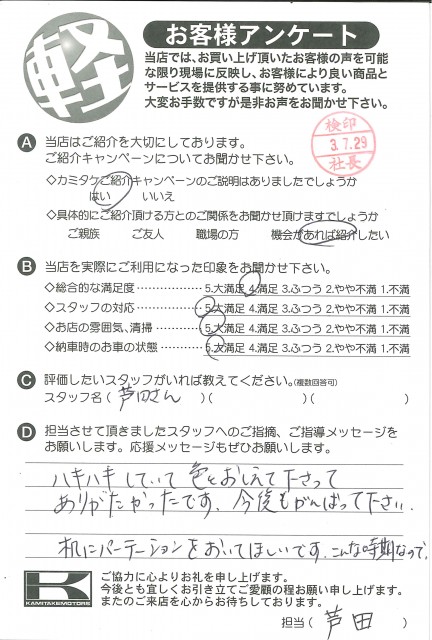 軽
お客様アンケート
当店では、お買い上げ頂いたお客様の声を可能
な限り現場に反映し、お客様により良い商品と
サービスを提供する事に努めています。
大変お手数ですが是非お声をお聞かせ下さい。
A 当店はご紹介を大切にしております。
ご紹介キャンペーンについてお聞かせ下さい。
検印
3.7.29
社長
◇カミタケご紹介キャンペーンのご説明はありましたでしょうか
はい いいえ
◇具体的にご紹介頂ける方とのご関係をお聞かせ頂けますでしょうか
ご親族 ご友人 職場の方 機会があれば紹介したい
B 当店を実際にご利用になった印象をお聞かせ下さい。
◇総合的な満足度……………5.大満足 4.満足 3.ふつう 2.やや不満 1.不満
◇スタッフの対応……………5.大満足 4.満足 3.ふつう 2.やや不満 1.不満
◇お店の雰囲気、清掃………5.大満足 4.満足 3.ふつう 2.やや不満 1.不満
◇納車時のお車の状態………5.大満足 4.満足 3.ふつう 2.やや不満 1.不満
C 評価したいスタッフがいれば教えてください。(複数回答可)
スタッフ名( 芦田さん )( )( )
D 担当させて頂きましたスタッフへのご指摘、ご指導メッセージを
お願いします。応援メッセージもぜひお願いします。
ハキハキしていて色々とおしえて下さって
ありがたかったです。今後もがんばって下さい.
机にパーテーションをおいてほしいです。こんな時期なので。
K
KAMITAKEMOTORS
ご協力に心よりお礼を申し上げます。
今後とも宜しくお引き立てご愛顧の程お願い申し上げます。
またのご来店を心からお待ちしております。
担当( 芦田 )